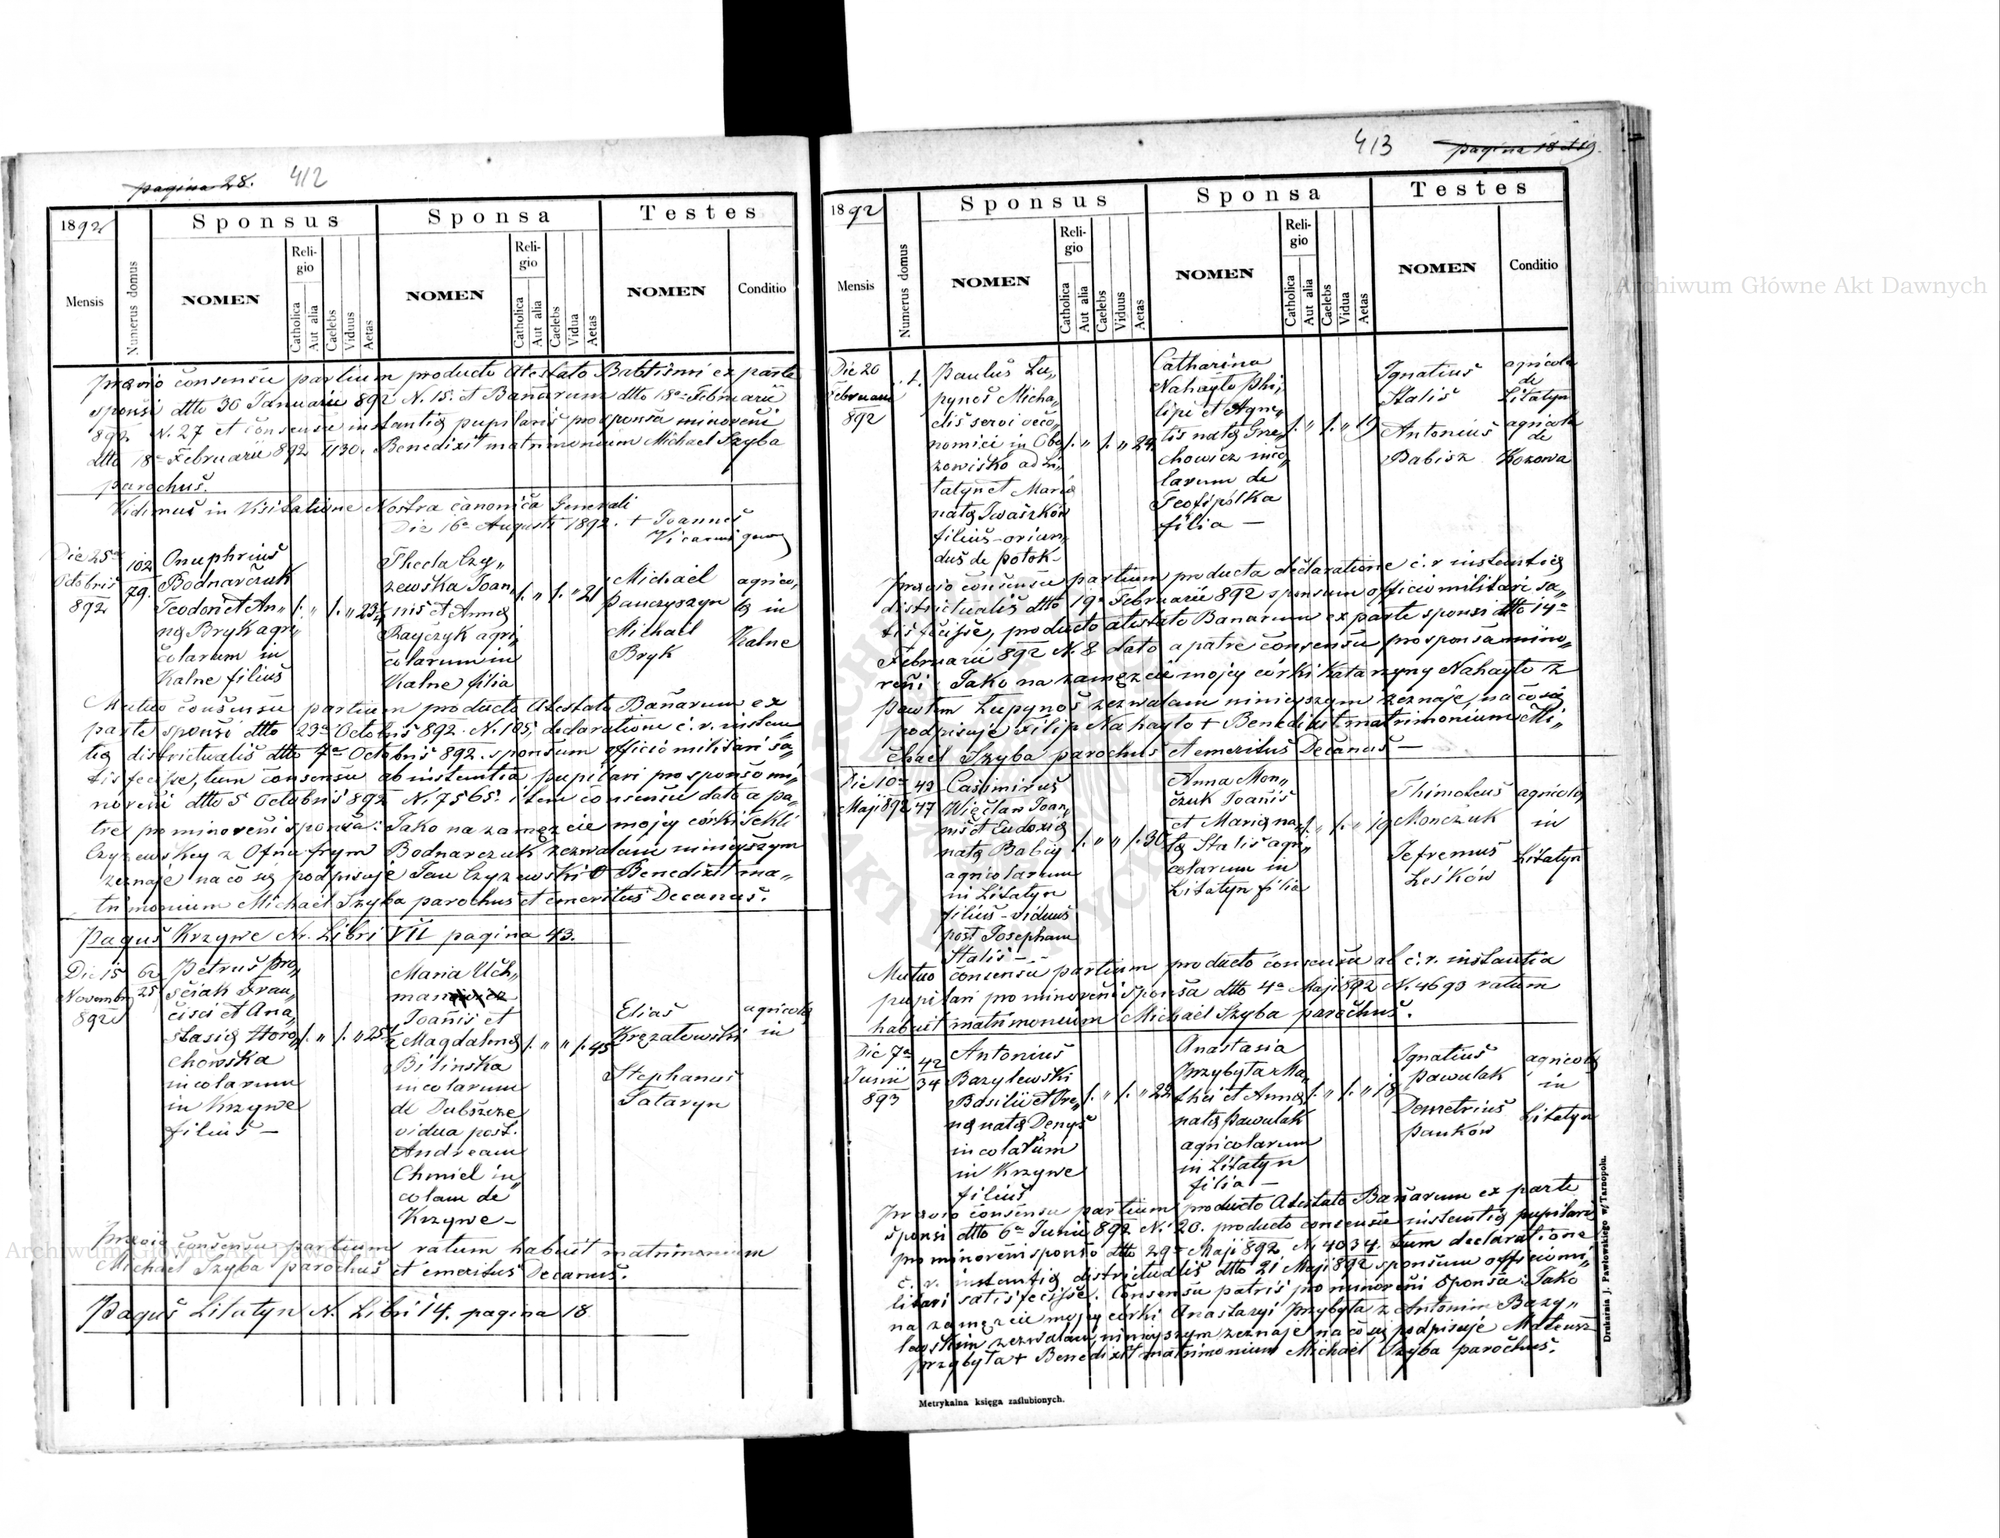 pagina 28. 412
1892
Sponsus
Sponsa
Testes
Mensis
Numerus domus
NOMEN
Religio
Catholica
Aut alia
Caelebs
Viduus
Aetas
NOMEN
Religio
Catholica
Aut alia
Caelebs
Vidua
Aetas
NOMEN
Conditio
praevio consensu partium producto Atestato Babtismi ex parte
sponsi dtto 30 Januarii 892 N. 15. et Banarum dtto 18a Februarii
892 N. 27 et consensu instantia pupilaris pro sponsa minoreni
dtto 18a Februarii 892 1130. Benedixit matrimonium Michael Szyba
parochus.
Vidimus in Visitatione Nostra canonica Generali
Die 16a Augusti 1892. + Joannes
Vicarius
Die 25a
Octobris
892
102
79.
Onuphrius
Bodnarczuk
Teodori et An„
na Bryk agri„
colarum in
Kalne filius
/. „ /. „ 23 1/4
Thecla Czy„
zewska Joan„
nis et Anna
Rayczyk agri„
colarum in
Kalne filia
/. „ /. „ 21
Michael
Pauczyszyn
Michael
Bryk
agrico„
la in
Kalne
Mutuo consensu partium producto Atestato Banarum ex
parte sponsi dtto 23a Octobris 892. N. 185, declaratione c. r. instan„
tia districtualis dtto 7a Octobris 892. sponsum officio militari sa„
tisfecisse, tum consensu ab instantia pupilari pro sponso mi„
noreni dtto 5 Octobris 892 N. 7565. item consensu dato a pa„
tre pro minoreni sponsa: Jako na zamęzcie mojey córki Tekli
Czyzewskey z Onufrym Bodnarczuk zezwalam niniejszym
zeznaje na co się podpisuje Jan Czyzewski + Benedixit ma„
trimonium Michael Szyba parochus et emeritus Decanus.
Pagus Krzywe Nr. Libri VII pagina 43.
Die 15
Novembris
892
62
25
Petrus Pro„
sciak Fran„
cisci et Ana„
stasia Horo„
chowska
incolarum
in Krzywe
filius —
/. „ /. „ 25 1/2
Maria Uch„
man
Joanis et
Magdalena
Bilinska
incolarum
de Dubszcze
vidua post.
Andream
Chmiel in„
colam de
Krzywe —
/. „ „ /. 45
Elias
Krzatowski
Stephanus
Tataryn
agricola
in
Praevio consensu partium ratum habuit matrimonium
Michael Szyba parochus et emeritus Decanus.
Pagus Litatyn N. Libri 14. pagina 18
413 pagina 18 et 19.
1892
Sponsus
Sponsa
Testes
Mensis
Numerus domus
NOMEN
Religio
Catholica
Aut alia
Caelebs
Viduus
Aetas
NOMEN
Religio
Catholica
Aut alia
Caelebs
Vidua
Aetas
NOMEN
Conditio
Die 20
Februarii
892
1.
Paulus Lu„
pynos Micha„
elis servi oeco„
nomici in Obo„
zowisko ad Li„
tatyn et Maria
nata Iwaszków
filius - oriun„
dus de Potok -
/. „ /. „ 24
Catharina
Nahaylo Phi„
lipi et Agne„
tis nata Grze„
chowicz inco„
larum de
Teofipólka
filia —
/. „ /. „ 19
Ignatius
Stalis
Antonius
Babisz
agricola
de
Litatyn
agricola
de
Kozowa
praevio consensu partium producta declaratione c. r. instantia
districtualis dtto 19a Februarii 892 sponsum officio militari sa„
tisfecisse, producto atestato Banarum ex parte sponsi dtto 14a
Februarii 892 N. 8 dato a patre consensu pro sponsa mino„
reni: Jako na zamęzcie mojey córki Katarzyny Nahaylo z
Pawłem Lupynos zezwalam niniejszym zeznaje, na co się
podpisuje Filip Nahaylo + Benedixit matrimonium Mi„
chael Szyba parochus et emeritus Decanus —
Die 10a
Maji 892
43
47
Casimirus
Więcław Joan„
nis et Eudoxia
nata Babij
agricolarum
in Litatyn
filius - viduus
post Josepham
Stalis - -
/. „ „ /. 30
Anna Mon„
czuk Joanis
et Maria na„
ta Stalis agri„
colarum in
Litatyn filia
/. „ /. „ 19
Thimoteus
Mończuk
Jefremus
Leśków
agricola
in
Litatyn
Mutuo consensu partium producto consensu ab c. r. instantia
pupilari pro minoreni sponsa dtto 4a Maji 892 N. 4693 ratum
habuit matrimonium Michael Szyba parochus.
Die 7a
Junii
893
42
34
Antonius
Bazylewski
Basilii et Ire„
na nata Denys
incolarum
in Krzywe
filius
/. „ /. „ 22
Anastasia
Przybyta Ma„
thei et Anna
nata Pawulak
agricolarum
in Litatyn
filia —
/. „ /. „ 18
Ignatius
Pawulak
Demetrius
Pańków
agricola
in
Litatyn
Praevio consensu partium producto Atestato Banarum ex parte
sponsi dtto 6a Junii 892 N. 20. producto consensu instantia pupilaris
pro minoreni sponso dtto 29a Maji 892, N. 4034. tum declaratione
c. r. instantia districtualis dtto 21 Maji 892 sponsum officio mi„
litari satisfecisse. Consensu patris pro minoreni sponsa: Jako
na zamęzcie mojey córki Anastazyi Przybyta z Antonim Bazy„
lewskim zezwalam niniejszym zeznaje na co się podpisuje Mateusz
Przybyta + Benedixit matrimonium Michael Szyba parochus.
Metrykalna księga zaślubionych.
Drukarnia J. Pawłowskiego w Tarnopolu.
Archiwum Główne Akt Dawnych
Archiwum Główne Akt Dawnych